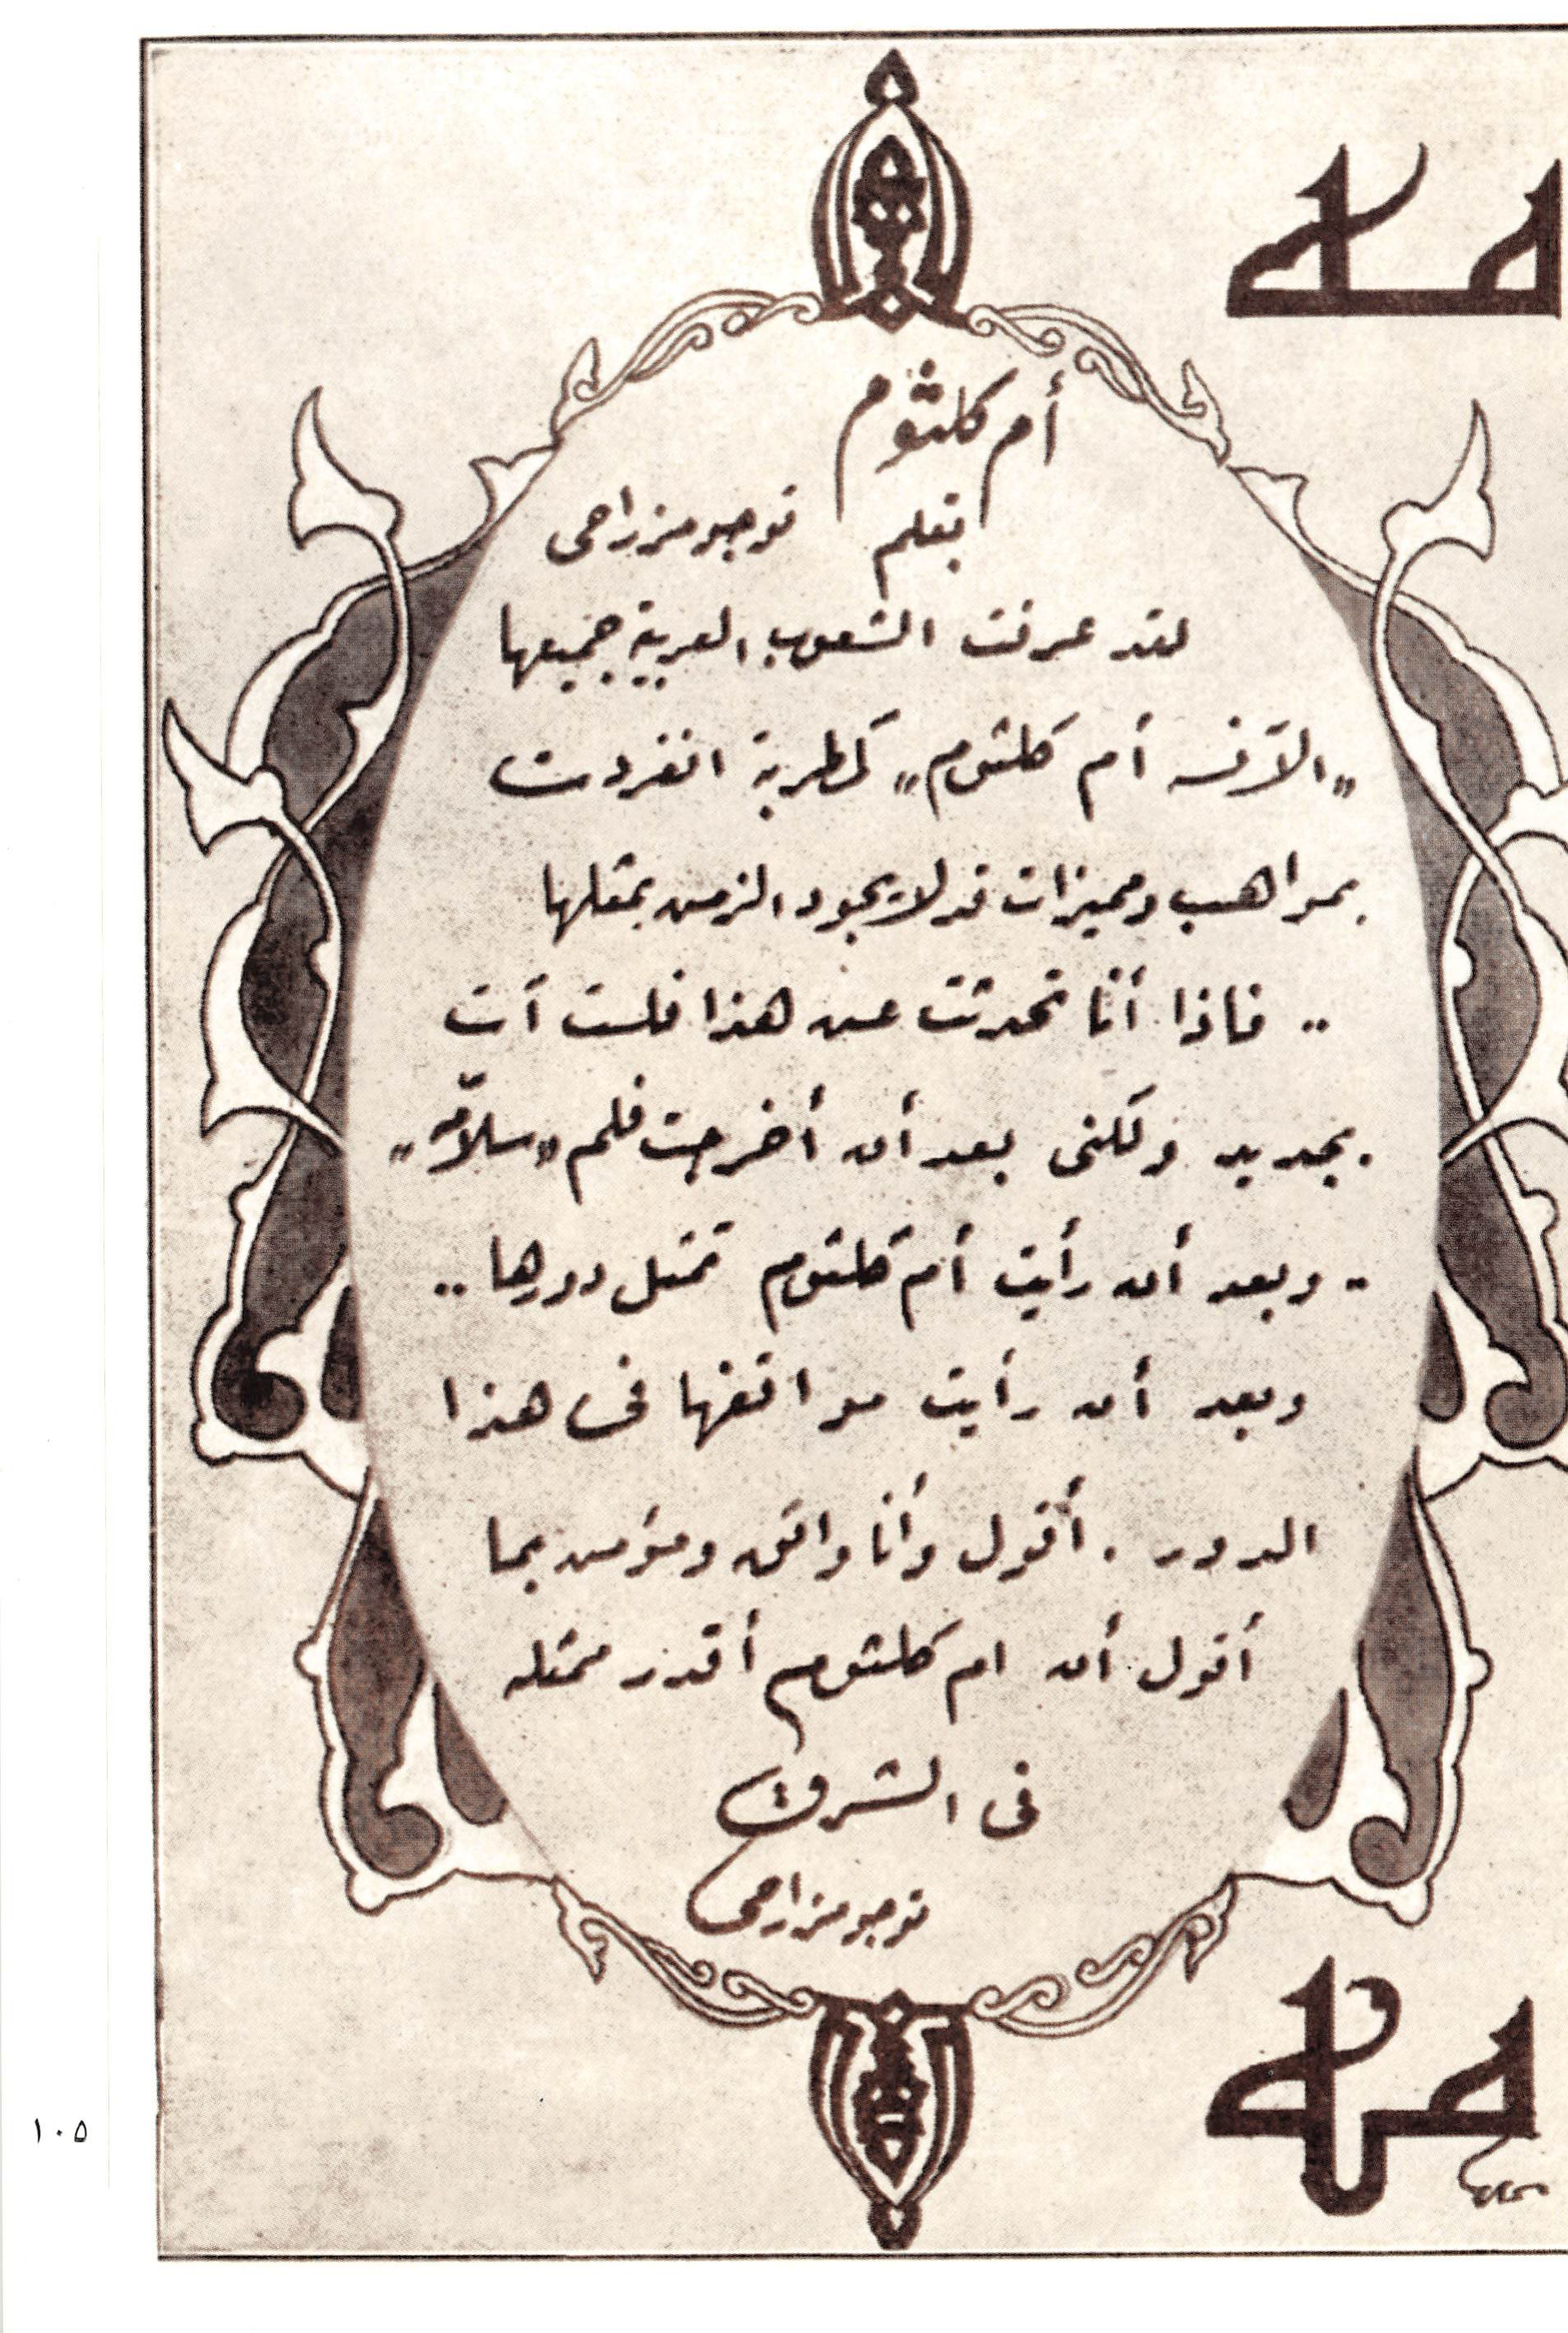 أم كلثوم
بقلم توجو مزراحى
لقد عرفت الشعوب العربية جميعها
"الآنسه أم كلثوم" كمطربة انفردت
بمواهب ومميزات قد لا يجود الزمن بمثلها
.. فاذا أنا تحدثت عن هذا فلست آت
بجديد ولكنى بعد أن أخرجت فلم "سلامّه"
.. وبعد أن رأيت أم كلثوم تمثل دورها ..
وبعد أن رأيت مواقفها فى هذا
الدور . أقول وأنا واثق ومؤمن بما
أقول أن ام كلثوم أقدر ممثله
فى الشرق
توجو مزراحى
١٠٥